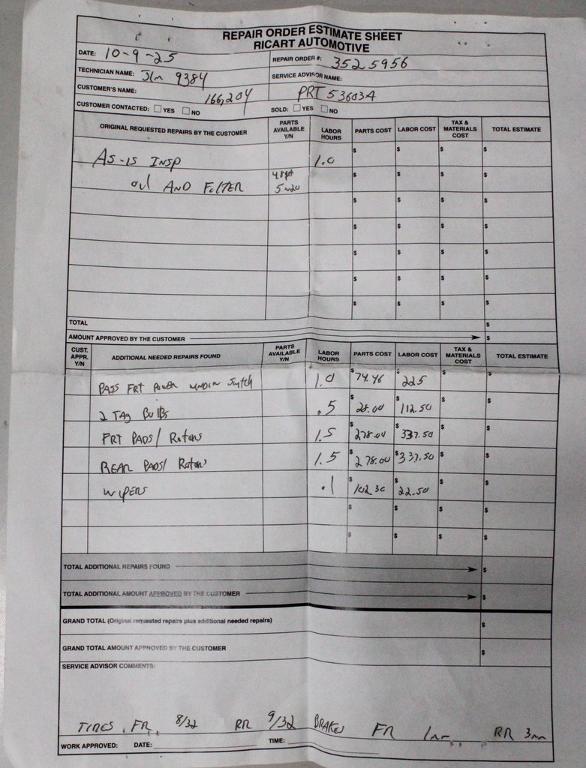 REPAIR ORDER ESTIMATE SHEET
RICART AUTOMOTIVE
DATE: 10-9-25 REPAIR ORDER #: 3525956
TECHNICIAN NAME: Jim 9384 SERVICE ADVISOR NAME:
CUSTOMER'S NAME: 166,204 PRT 53603A
CUSTOMER CONTACTED: YES NO SOLD: YES NO
ORIGINAL REQUESTED REPAIRS BY THE CUSTOMER PARTS AVAILABLE Y/N LABOR HOURS PARTS COST LABOR COST TAX & MATERIALS COST TOTAL ESTIMATE
AS-IS INSP 1.0 $ $ $ $
oil AND FilTER 5w20 $ $ $ $
$ $ $ $
$ $ $ $
$ $ $ $
$ $ $ $
$ $ $ $
TOTAL $
AMOUNT APPROVED BY THE CUSTOMER $
CUST. APPR. Y/N ADDITIONAL NEEDED REPAIRS FOUND PARTS AVAILABLE Y/N LABOR HOURS PARTS COST LABOR COST TAX & MATERIALS COST TOTAL ESTIMATE
PASS FRT POWER WINDOW Switch 1.0 $74.46 $225 $ $
2 TAG BulBs .5 $28.00 $112.50 $ $
FRT PADS/ Rotors 1.5 $278.00 $337.50 $ $
REAR PADS/ Rotors 1.5 $278.00 $337.50 $ $
WIPERS .1 $102.30 $22.50 $ $
$ $ $ $
$ $ $ $
TOTAL ADDITIONAL REPAIRS FOUND $
TOTAL ADDITIONAL AMOUNT APPROVED BY THE CUSTOMER $
GRAND TOTAL (Original requested repairs plus additional needed repairs) $
GRAND TOTAL AMOUNT APPROVED BY THE CUSTOMER $
SERVICE ADVISOR COMMENTS:
TIRES FR 8/32 RR 9/32 BRAKES FR 1mm RR 3mm
WORK APPROVED: DATE: TIME: